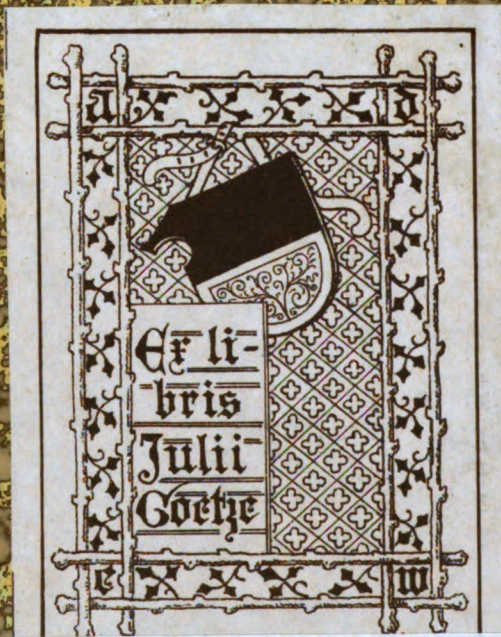 a d
Ex li-
bris
Julii
Goetze
e w